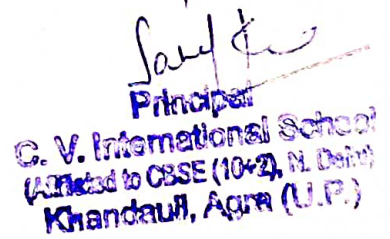 Principal
C. V. International School
(Affiliated to CBSE (10+2), N. Delhi)
Khandauli, Agra (U.P.)